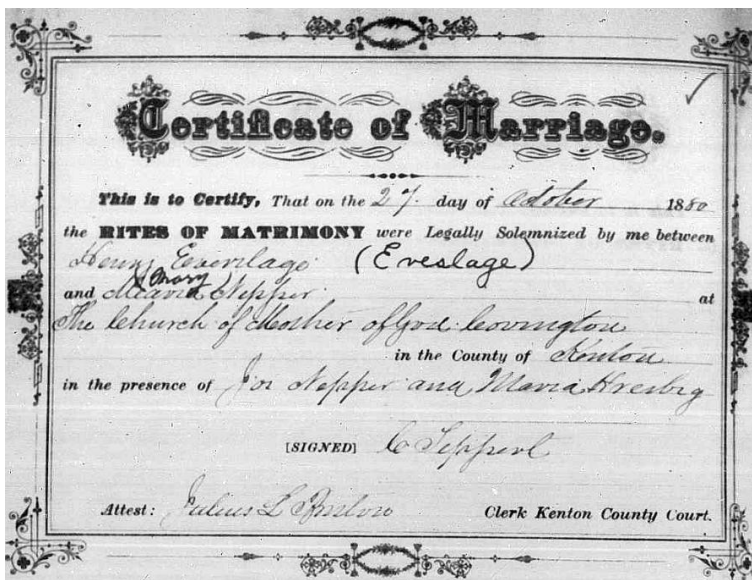 Certificate of Marriage.
This is to Certify, That on the 27. day of October 1880
the RITES OF MATRIMONY were Legally Solemnized by me between
Henry Eeverslage (Eveslage)
and Maria (Mary) Nepper at
The Church of Mother of God Covington
in the County of Kenton
in the presence of Jos Nepper and Maria
[SIGNED] C
Attest: Julius L
Clerk Kenton County Court.